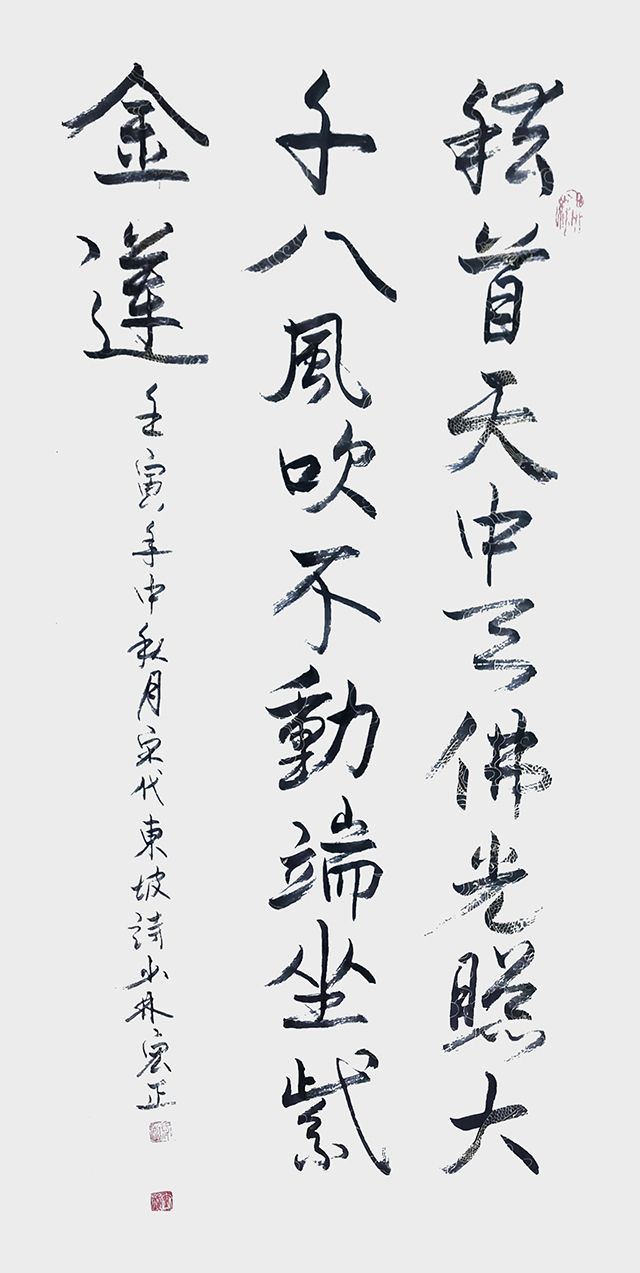 稽首天中天佛光照大
千八風吹不動端坐紫
金蓮
壬寅年中秋月宋代東坡詩少林正